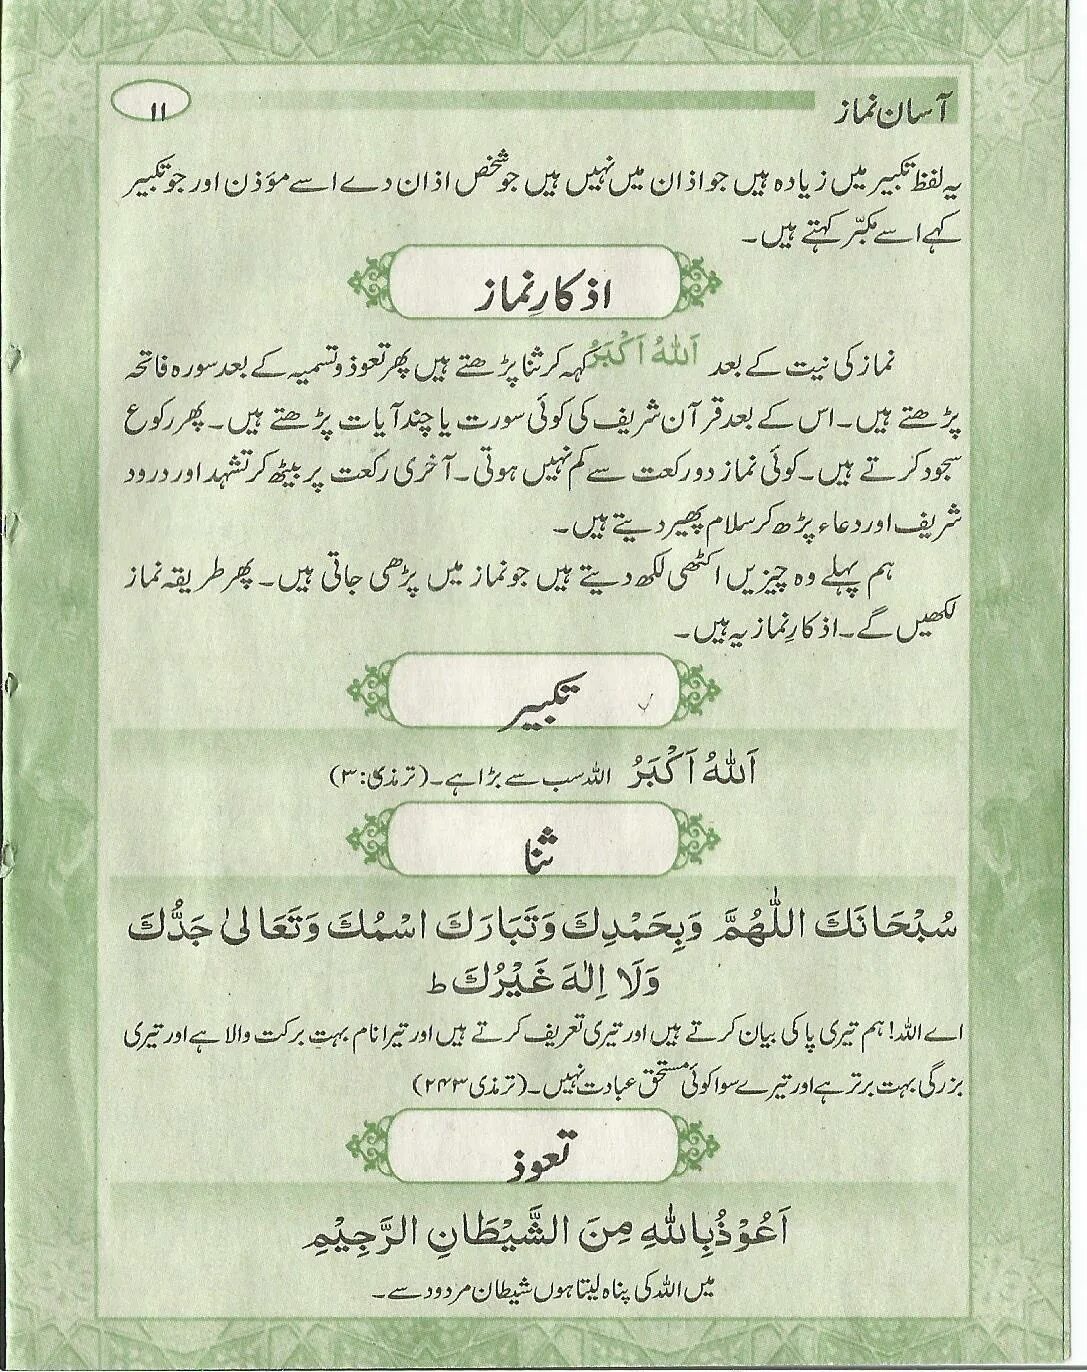 آسان نماز
۱۱
یہ لفظ تکبیر میں زیادہ ہیں جو اذان میں نہیں ہیں جو شخص اذان دے اسے مؤذن اور جو تکبیر
کہے اسے مکبّر کہتے ہیں۔
اذکارِ نماز
نماز کی نیت کے بعد اَللهُ اَكْبَرُ کہہ کر ثنا پڑھتے ہیں پھر تعوذ و تسمیہ کے بعد سورہ فاتحہ
پڑھتے ہیں۔ اس کے بعد قرآن شریف کی کوئی سورت یا چند آیات پڑھتے ہیں۔ پھر رکوع
سجود کرتے ہیں۔ کوئی نماز دو رکعت سے کم نہیں ہوتی۔ آخری رکعت پر بیٹھ کر تشہد اور درود
شریف اور دعاء پڑھ کر سلام پھیر دیتے ہیں۔
ہم پہلے وہ چیزیں اکٹھی لکھ دیتے ہیں جو نماز میں پڑھی جاتی ہیں۔ پھر طریقہ نماز
لکھیں گے۔ اذکارِ نماز یہ ہیں۔
تکبیر
اَللهُ اَكْبَرُ اللہ سب سے بڑا ہے۔ (ترمذی: ۳)
ثنا
سُبْحَانَكَ اللّٰهُمَّ وَبِحَمْدِكَ وَتَبَارَكَ اسْمُكَ وَتَعَالىٰ جَدُّكَ
وَلَا اِلٰهَ غَيْرُكَ ط
اے اللہ! ہم تیری پاکی بیان کرتے ہیں اور تیری تعریف کرتے ہیں اور تیرا نام بہت برکت والا ہے اور تیری
بزرگی بہت برتر ہے اور تیرے سوا کوئی مستحق عبادت نہیں۔ (ترمذی ۲۴۳)
تعوذ
اَعُوْذُبِاللهِ مِنَ الشَّيْطَانِ الرَّجِيْمِ
میں اللہ کی پناہ لیتا ہوں شیطان مردود سے۔